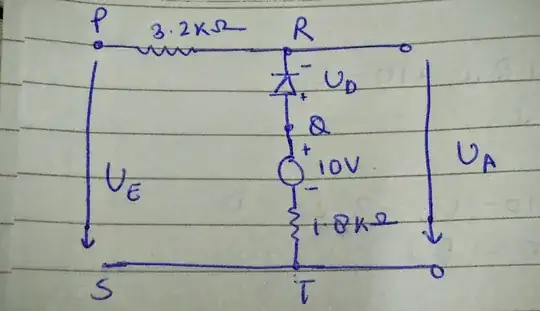 P
3.2KΩ
R
-
+
U_D
Q
+
10V
-
U_E
U_A
1.8KΩ
S
T